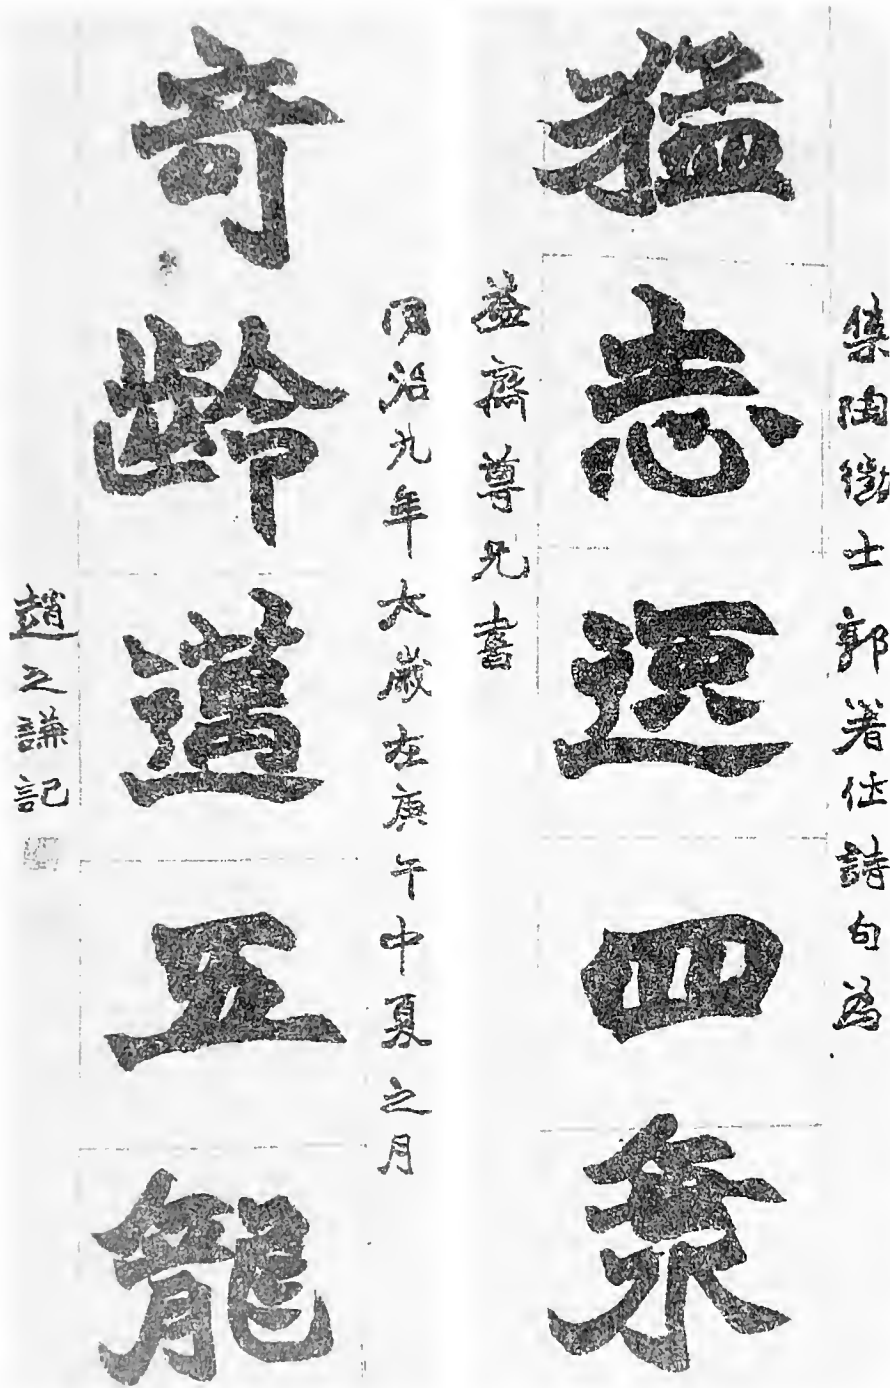 集陶徵士郭著作詩句為
猛志逸四海
益齋尊兄書
同治九年大歲在庚午中夏之月
奇齡邁五龍
趙之謙記